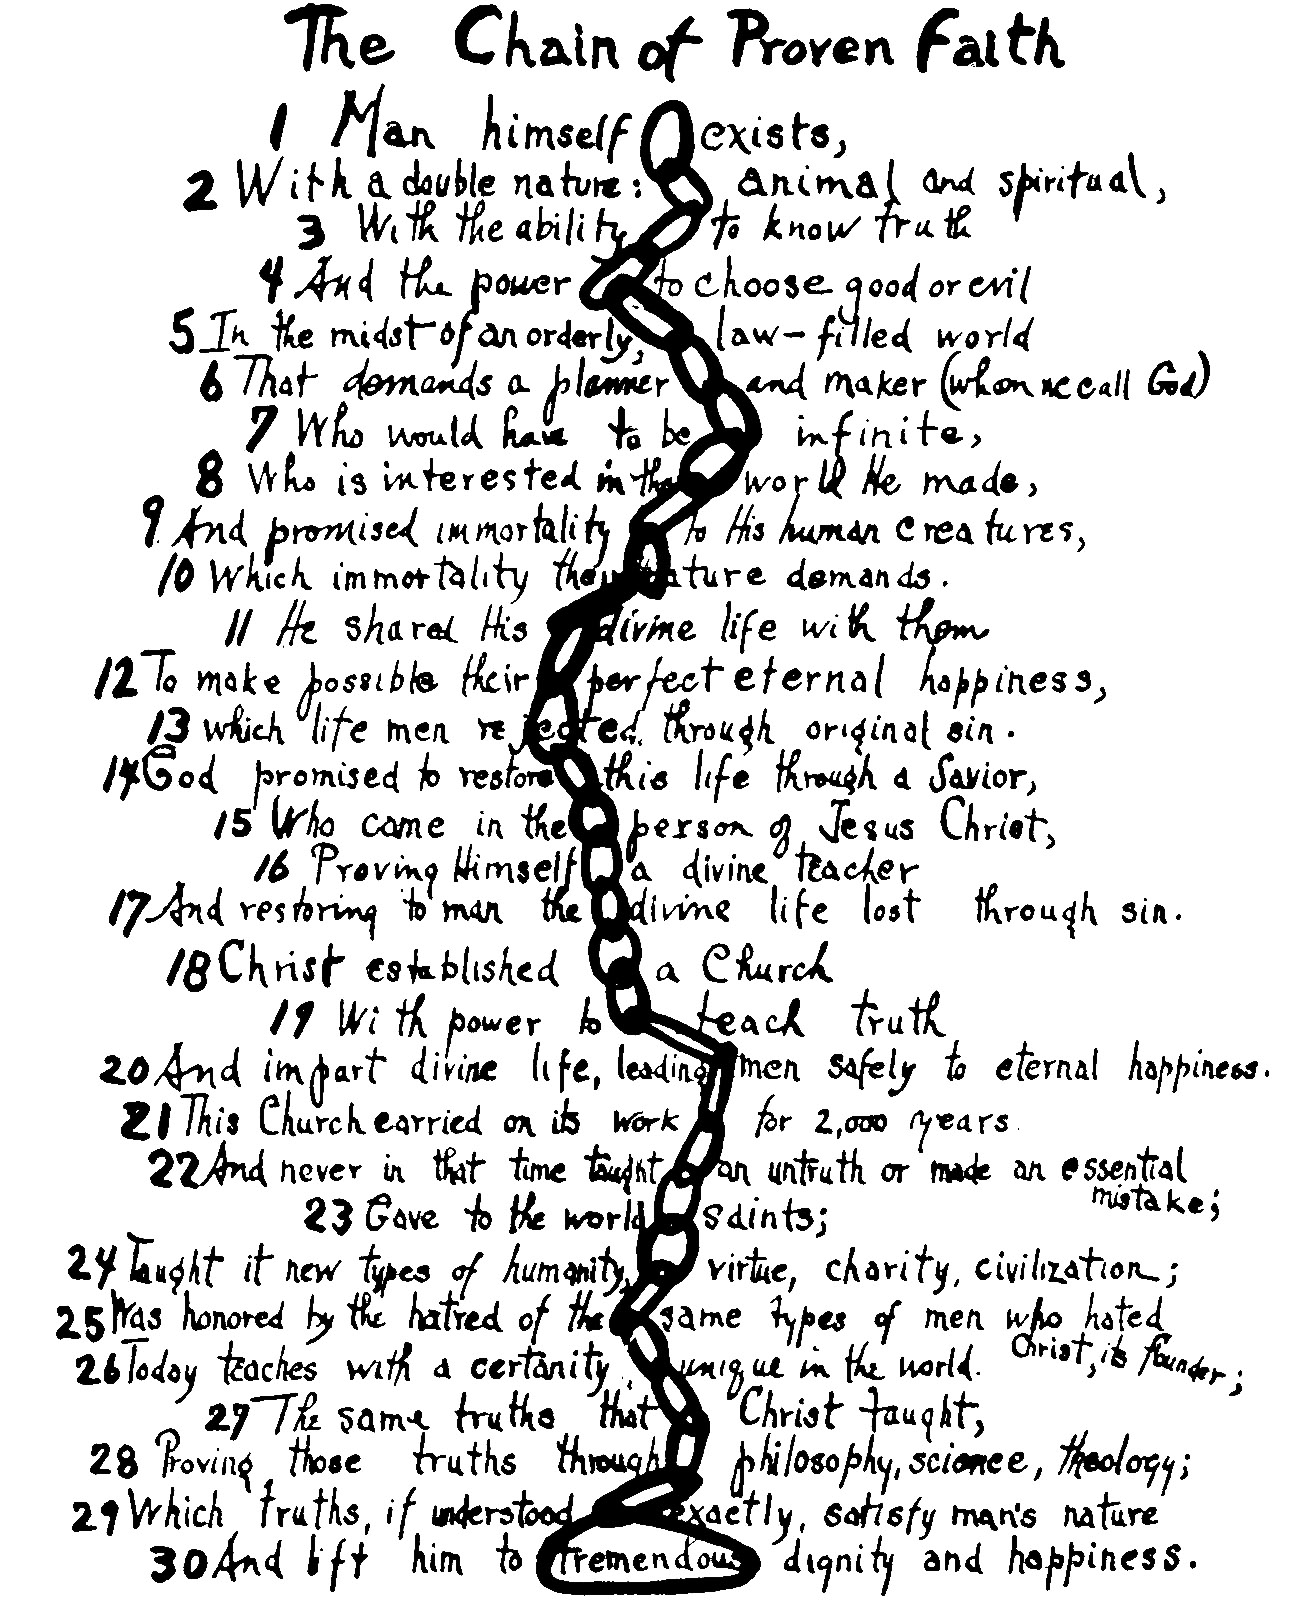 The Chain of Proven Faith
1 Man himself exists,
2 With a double nature: animal and spiritual,
3 With the ability to know truth
4 And the power to choose good or evil
5 In the midst of an orderly, law-filled world
6 That demands a planner and maker (whom we call God)
7 Who would have to be infinite,
8 Who is interested in the world He made,
9 And promised immortality to His human creatures,
10 Which immortality their nature demands.
11 He shared His divine life with them
12 To make possible their perfect eternal happiness,
13 which life men rejected through original sin.
14 God promised to restore this life through a Savior,
15 Who came in the person of Jesus Christ,
16 Proving Himself a divine teacher
17 And restoring to man the divine life lost through sin.
18 Christ established a Church
19 With power to teach truth
20 And impart divine life, leading men safely to eternal happiness.
21 This Church carried on its work for 2,000 years
22 And never in that time taught an untruth or made an essential
mistake;
23 Gave to the world saints;
24 Taught it new types of humanity, virtue, charity, civilization;
25 Was honored by the hatred of the same types of men who hated
Christ, its founder;
26 Today teaches with a certanity unique in the world.
27 The same truths that Christ taught,
28 Proving those truths through philosophy, science, theology;
29 Which truths, if understood exactly, satisfy man's nature
30 And lift him to tremendous dignity and happiness.